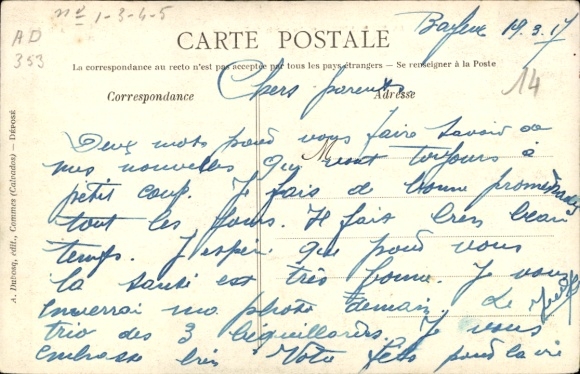 nº 1-3-4-5
AD
353
Bayeux 19.3.17
CARTE POSTALE
La correspondance au recto n'est pas acceptée par tous les pays étrangers — Se renseigner à la Poste
14
Correspondance
Adresse
Chers parents
M
Deux mots pour vous faire savoir de
mes nouvelles qui vont toujours à
petit coup. Je fais de bonne promenades
tout les jours. Il fait très beau
temps. J'espère que pour vous
la santé est très bonne. Je vous
enverrai ma photo demain. Le
trio des 3 béquillards. Je vous
embrasse bien Votre fils pour la vie
A. Dubosq, édit., Commes (Calvados) — DÉPOSÉ